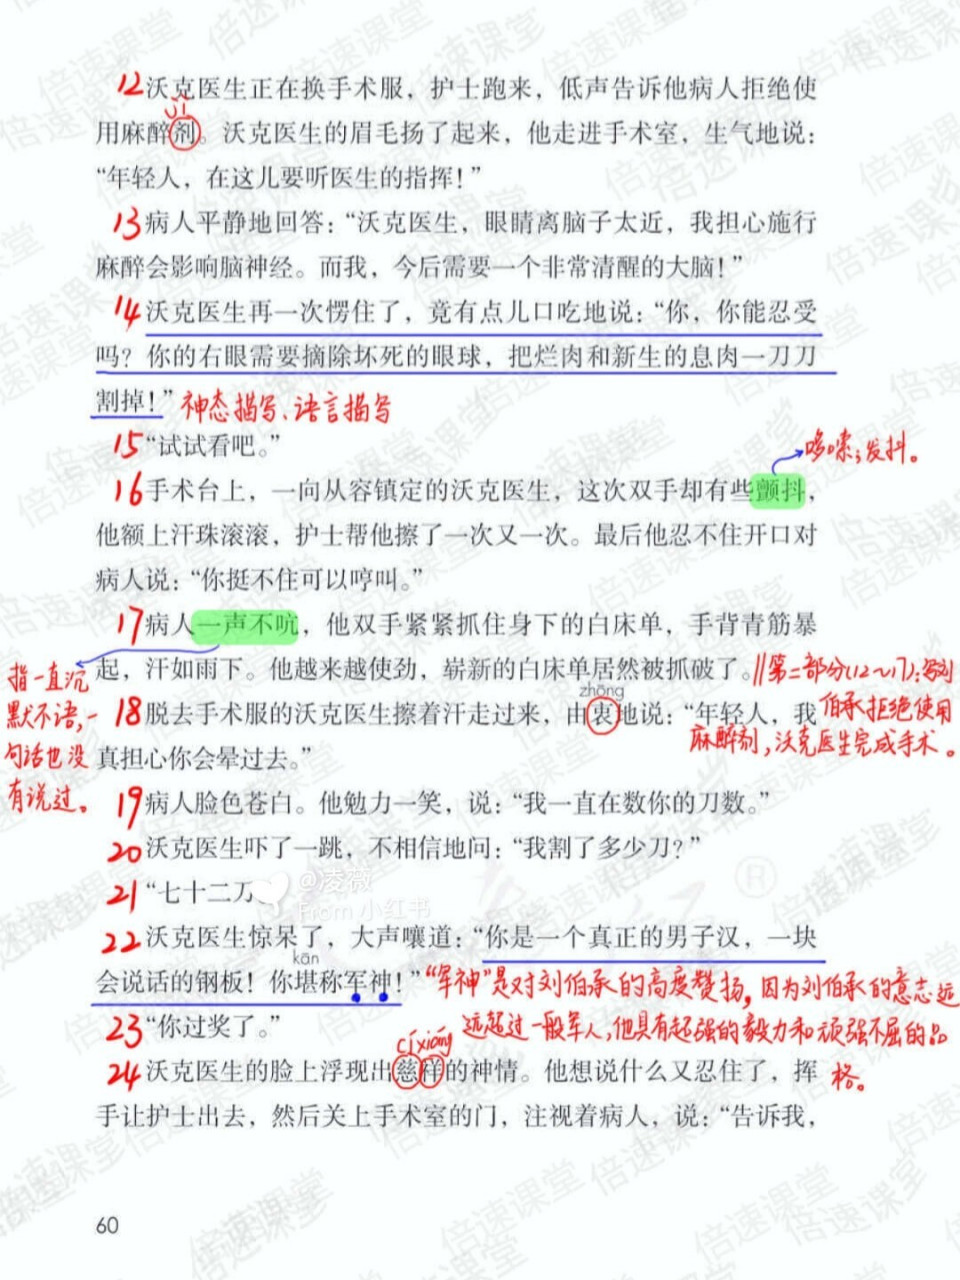 12沃克医生正在换手术服，护士跑来，低声告诉他病人拒绝使
jì
用麻醉剂。沃克医生的眉毛扬了起来，他走进手术室，生气地说：
“年轻人，在这儿要听医生的指挥！”
13病人平静地回答：“沃克医生，眼睛离脑子太近，我担心施行
麻醉会影响脑神经。而我，今后需要一个非常清醒的大脑！”
14沃克医生再一次愣住了，竟有点儿口吃地说：“你，你能忍受
吗？你的右眼需要摘除坏死的眼球，把烂肉和新生的息肉一刀刀
割掉！” 神态描写、语言描写
15“试试看吧。”
哆嗦；发抖。
16手术台上，一向从容镇定的沃克医生，这次双手却有些颤抖，
他额上汗珠滚滚，护士帮他擦了一次又一次。最后他忍不住开口对
病人说：“你挺不住可以哼叫。”
17病人一声不吭，他双手紧紧抓住身下的白床单，手背青筋暴
起，汗如雨下。他越来越使劲，崭新的白床单居然被抓破了。
指一直沉
默不语，一
句话也没
有说过。
//第二部分(12~17)：写刘
伯承拒绝使用
麻醉剂，沃克医生完成手术。
zhōng
18脱去手术服的沃克医生擦着汗走过来，由衷地说：“年轻人，我
真担心你会晕过去。”
19病人脸色苍白。他勉力一笑，说：“我一直在数你的刀数。”
20沃克医生吓了一跳，不相信地问：“我割了多少刀？”
21“七十二刀
@凌薇
From 小红书
22沃克医生惊呆了，大声嚷道：“你是一个真正的男子汉，一块
kān
会说话的钢板！你堪称军神！”
“军神”是对刘伯承的高度赞扬，因为刘伯承的意志远
远超过一般军人，他具有超强的毅力和顽强不屈的品
格。
23“你过奖了。”
cí xiáng
24沃克医生的脸上浮现出慈祥的神情。他想说什么又忍住了，挥
手让护士出去，然后关上手术室的门，注视着病人，说：“告诉我，
60
倍速课堂